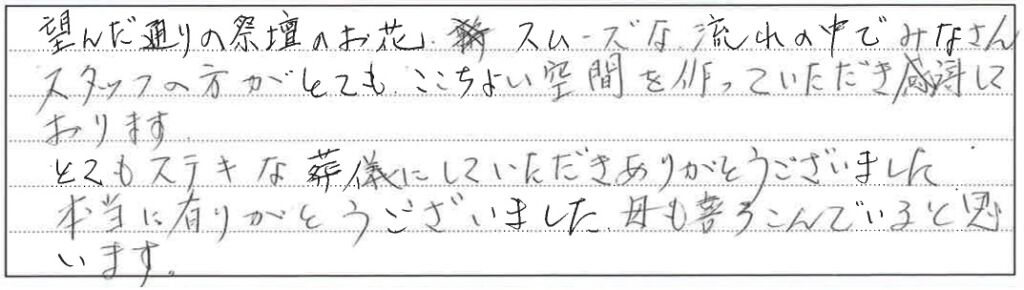 望んだ通りの祭壇のお花、スムーズな流れの中でみなさん
スタッフの方がとても、ここちよい空間を作っていただき感謝して
おります。
とてもステキな葬儀にしていただきありがとうございました
本当に有りがとうございました。母も喜ろこんでいると思
います。